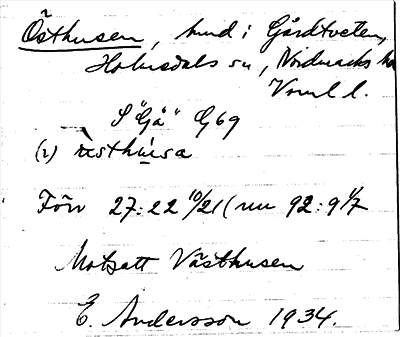 Östhusen, hmd i Gårdtveten,
Holmedals sn, Nordmarks hd
Vrml l.
S "Gå" G69
(2) östhúsa
Förr 27:22 10/21 (nu 92:9 1/7
Motsatt Västhusen
E. Andersson 1934.